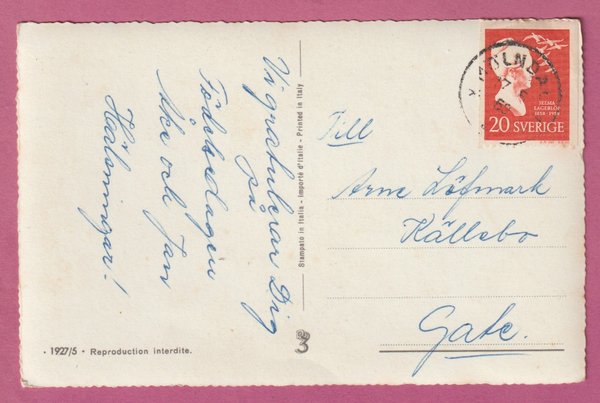 Vi gratulerar Dig
på
Födelsedagen
Åke och Jan
Hälsningar!
Stampato in Italia - Importé d'Italie - Printed in Italy
SELMA
LAGERLÖF
1858-1958
20 SVERIGE
MÖLNDAL
Till
Arne Löfmark
Källebo
Gate.
• 1927/5 • Reproduction interdite.
3